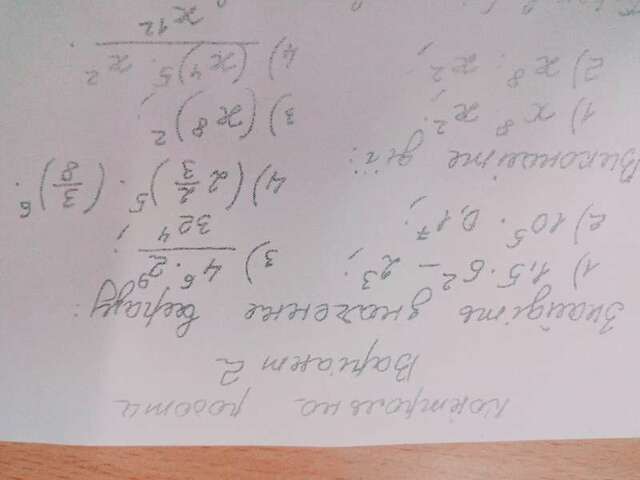 Контрольна робота
Варіант 2
Знайдіть значення виразу:
1) 1,5 · 6² − 2³; 3) (4⁶ · 2⁹) / 32⁴;
2) 10⁵ · 0,1⁷; 4) (2 2/3)⁵ · (3/8)⁶.
Виконайте дії:
1) x⁸ · x²; 3) (x⁸)²;
2) x⁸ : x²; 4) ((x⁴)⁵ · x²) / x¹².